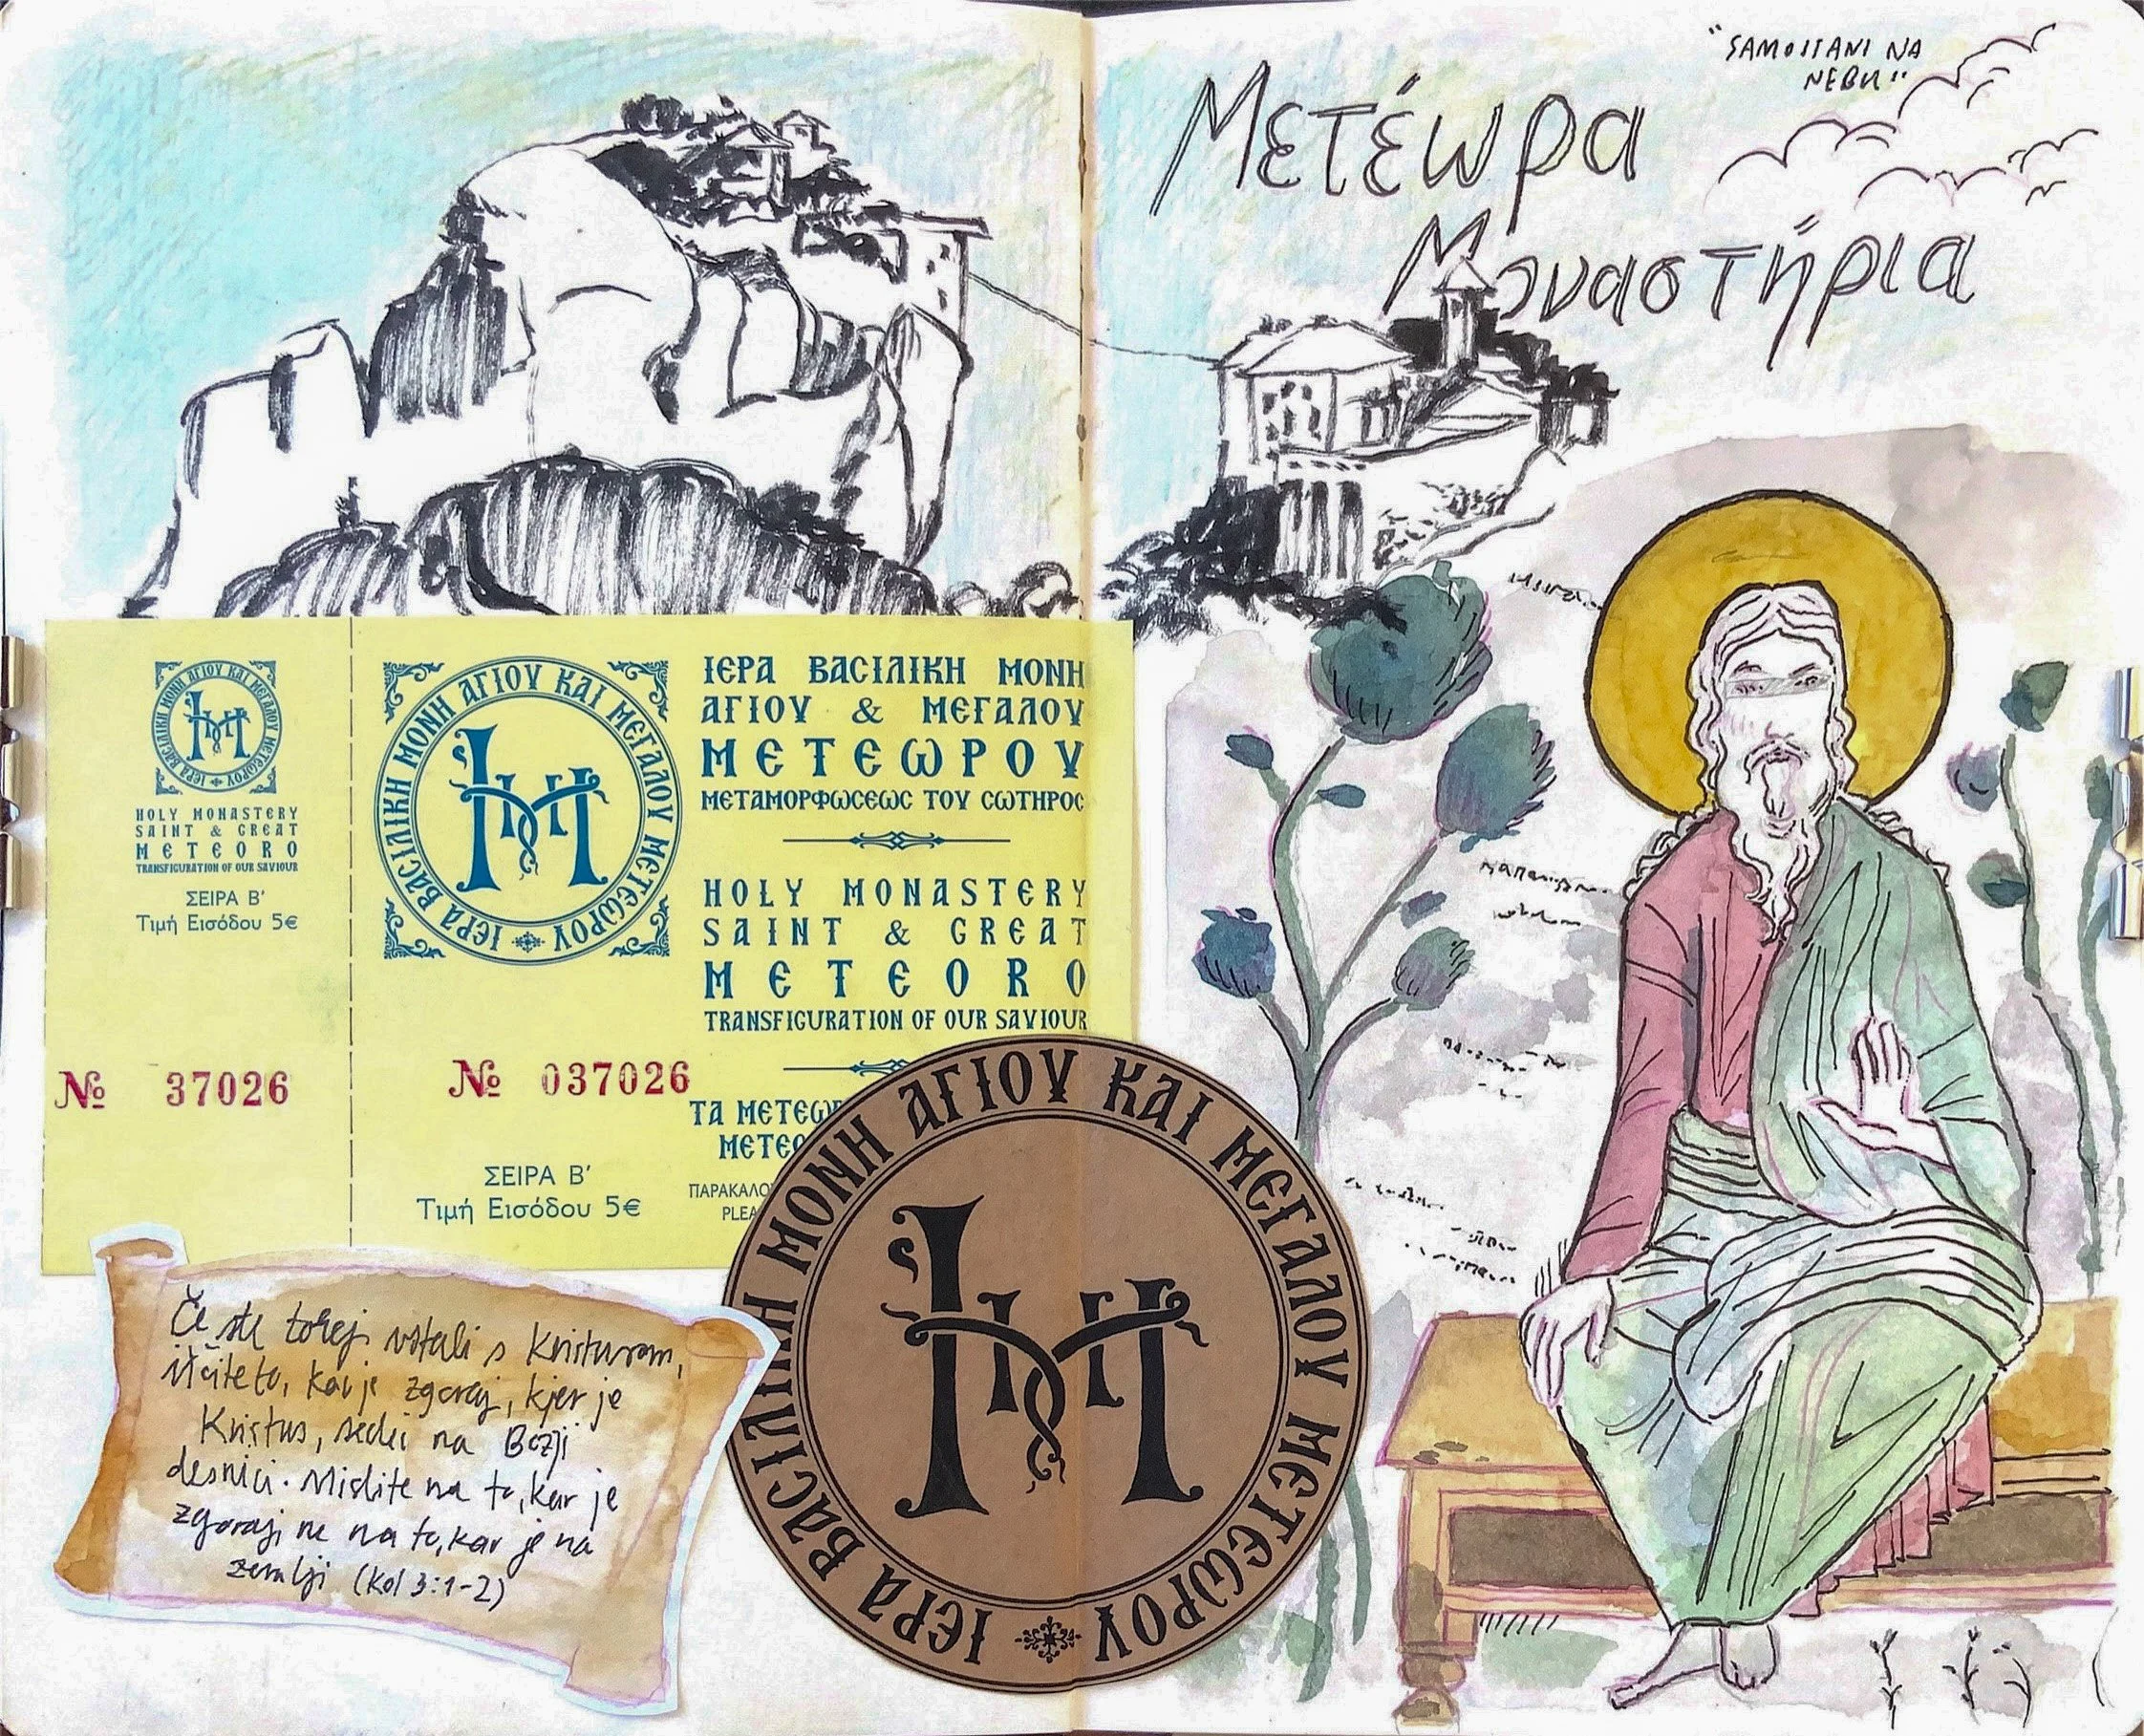 "SAMOSTANI NA
NEBU"
Μετέωρα
Μοναστήρια
ΙΕΡΑ ΒΑCΙΛΙΚΗ ΜΟΝΗ ΑΓΙΟΥ ΚΑΙ ΜΕΓΑΛΟΥ ΜΕΤΕѠΡΟΥ
HOLY MONASTERY
SAINT & GREAT
METEORO
TRANSFIGURATION OF OUR SAVIOUR
ΣΕΙΡΑ Β'
Τιμή Εισόδου 5€
№ 37026
ΙΕΡΑ ΒΑCΙΛΙΚΗ ΜΟΝΗ ΑΓΙΟΥ ΚΑΙ ΜΕΓΑΛΟΥ ΜΕΤΕѠΡΟΥ
ΙΕΡΑ ΒΑCΙΛΙΚΗ ΜΟΝΗ
ΑΓΙΟΥ & ΜΕΓΑΛΟΥ
ΜΕΤΕѠΡΟΥ
ΜΕΤΑΜΟΡΦѠCΕѠC ΤΟΥ CѠΤΗΡΟC
HOLY MONASTERY
SAINT & GREAT
METEORO
TRANSFIGURATION OF OUR SAVIOUR
№ 037026
ΤΑ ΜΕΤΕѠΡ
ΜΕΤΕΟ
ΣΕΙΡΑ Β'
Τιμή Εισόδου 5€
ΠΑΡΑΚΑΛΟ
PLEA
ΙΕΡΑ ΒΑCΙΛΙΚΗ ΜΟΝΗ ΑΓΙΟΥ ΚΑΙ ΜΕΓΑΛΟΥ ΜΕΤΕѠΡΟΥ
Če ste torej vstali s Kristusom,
iščite to, kar je zgoraj, kjer je
Kristus, sedeč na Božji
desnici. Mislite na to, kar je
zgoraj ne na to, kar je na
zemlji (Kol 3:1-2)